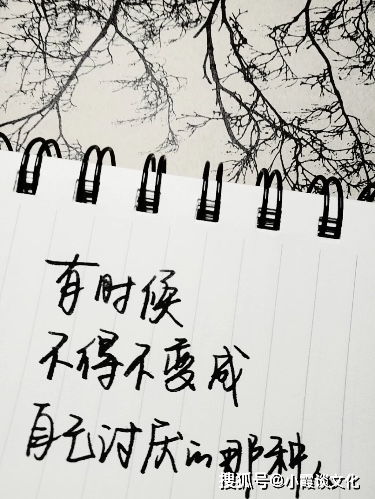 有时候
不得不变成
自己讨厌的那种人
搜狐号@小霞谈文化